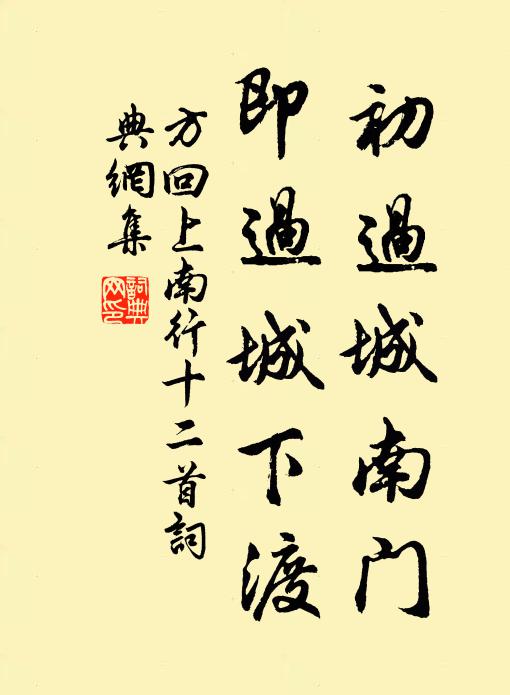 初過城南门
即過城下渡
方回上南行十二首詞
典網集
詞典网印